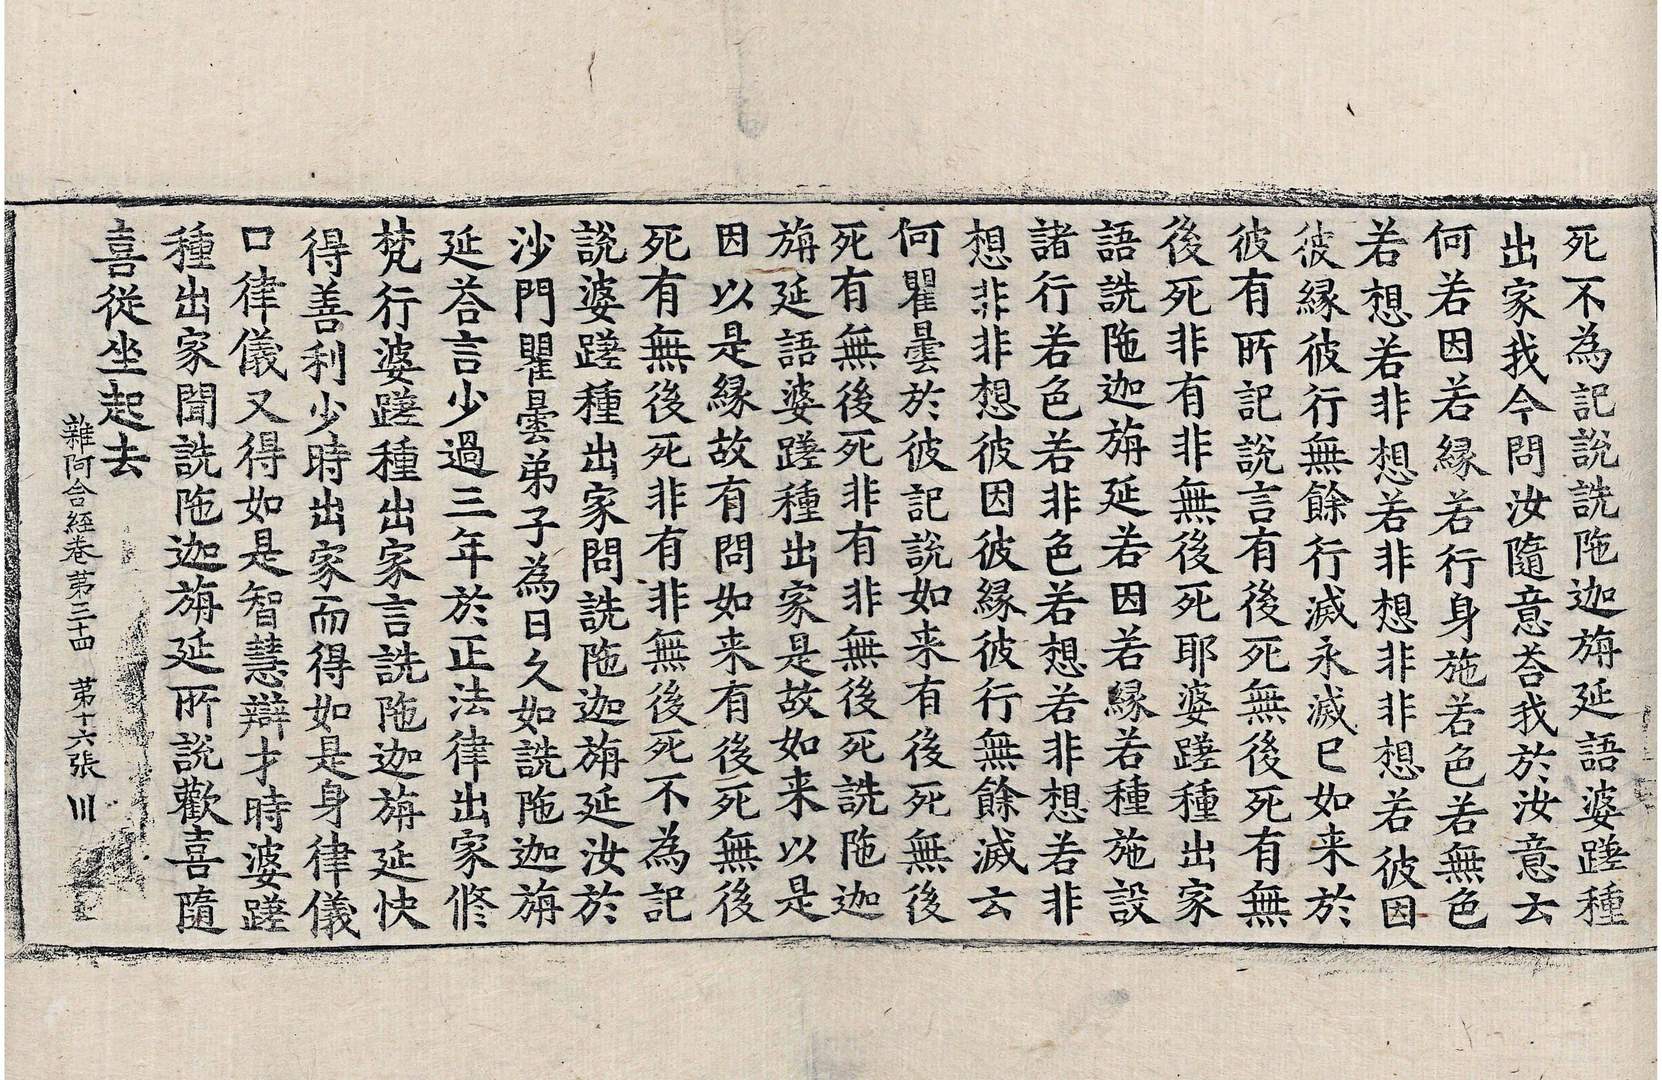 死不為記說詵陁迦旃延語婆蹉種
出家我今問汝隨意荅我於汝意云
何若因若縁若行身施若色若無色
若想若非想若非想非非想若彼因
彼縁彼行無餘行滅永滅已如来於
彼有所記說言有後死無後死有無
後死非有非無後死耶婆蹉種出家
語詵陁迦旃延若因若縁若種施設
諸行若色若非色若想若非想若非
想非非想彼因彼縁彼行無餘滅云
何瞿曇於彼記說如来有後死無後
死有無後死非有非無後死詵陁迦
旃延語婆蹉種出家是故如来以是
因以是縁故有問如来有後死無後
死有無後死非有非無後死不為記
說婆蹉種出家問詵陁迦旃延汝於
沙門瞿曇弟子為日久如詵陁迦旃
延荅言少過三年於正法律出家修
梵行婆蹉種出家言詵陁迦旃延快
得善利少時出家而得如是身律儀
口律儀又得如是智慧辯才時婆蹉
種出家聞詵陁迦旃延所說歡喜隨
喜從坐起去
雜阿含経卷第三十四 第十六張 川